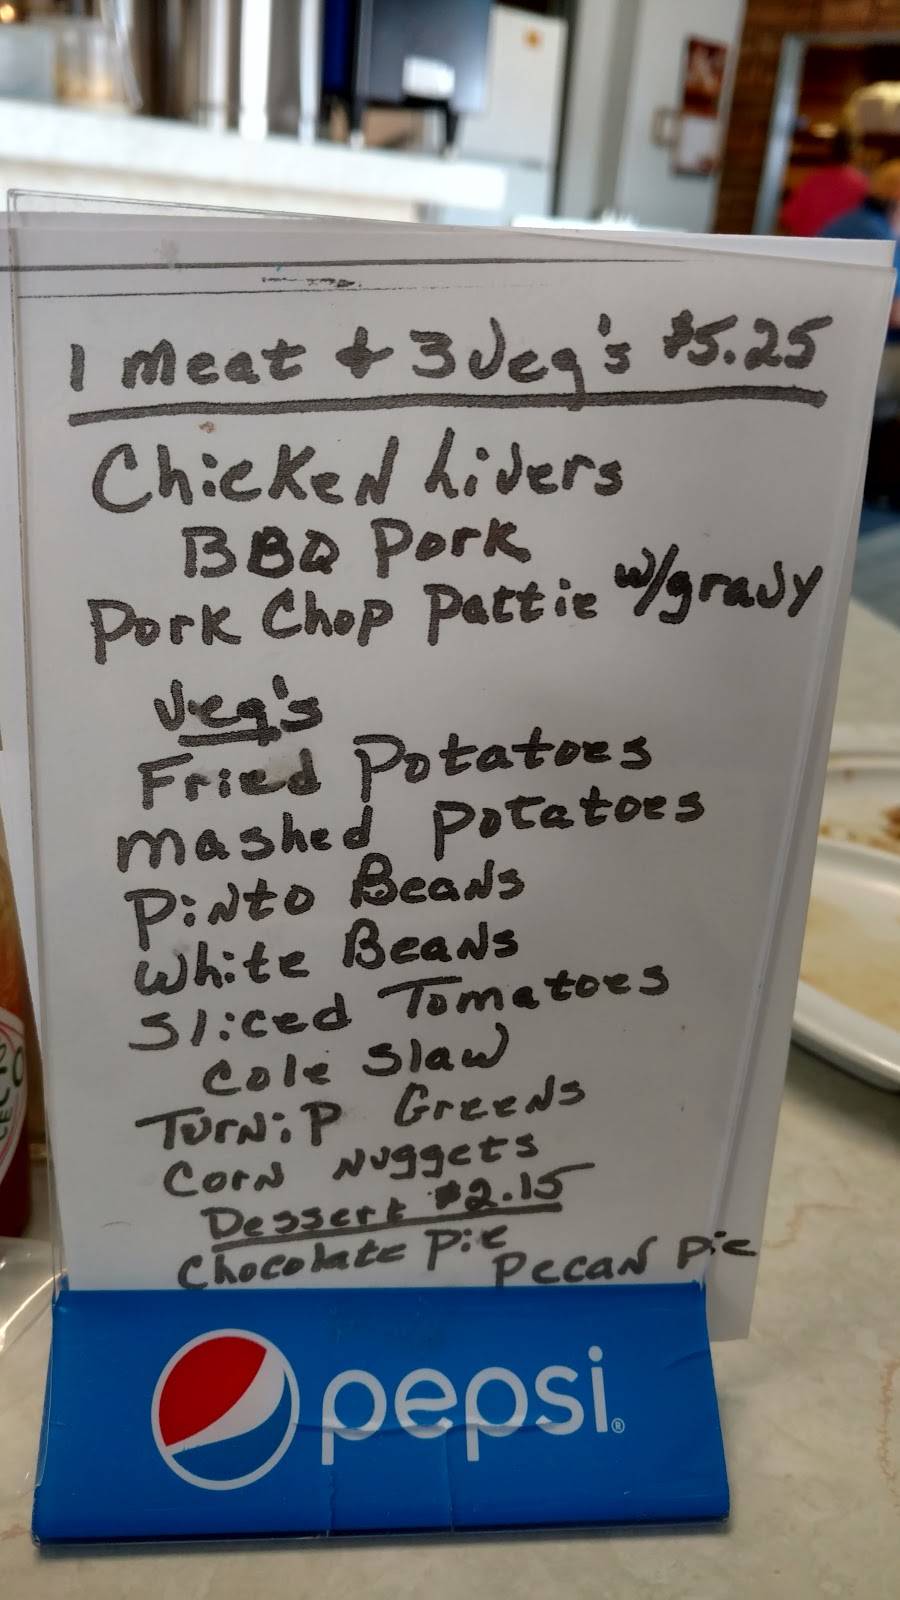 1 meat & 3 Veg's $5.25
Chicken Livers
BBQ Pork
Pork Chop Pattie w/gravy
Veg's
Fried Potatoes
mashed potatoes
Pinto Beans
White Beans
Sliced Tomatoes
Cole Slaw
Turnip Greens
Corn Nuggets
Dessert $2.15
Chocolate Pie Pecan Pie
pepsi®